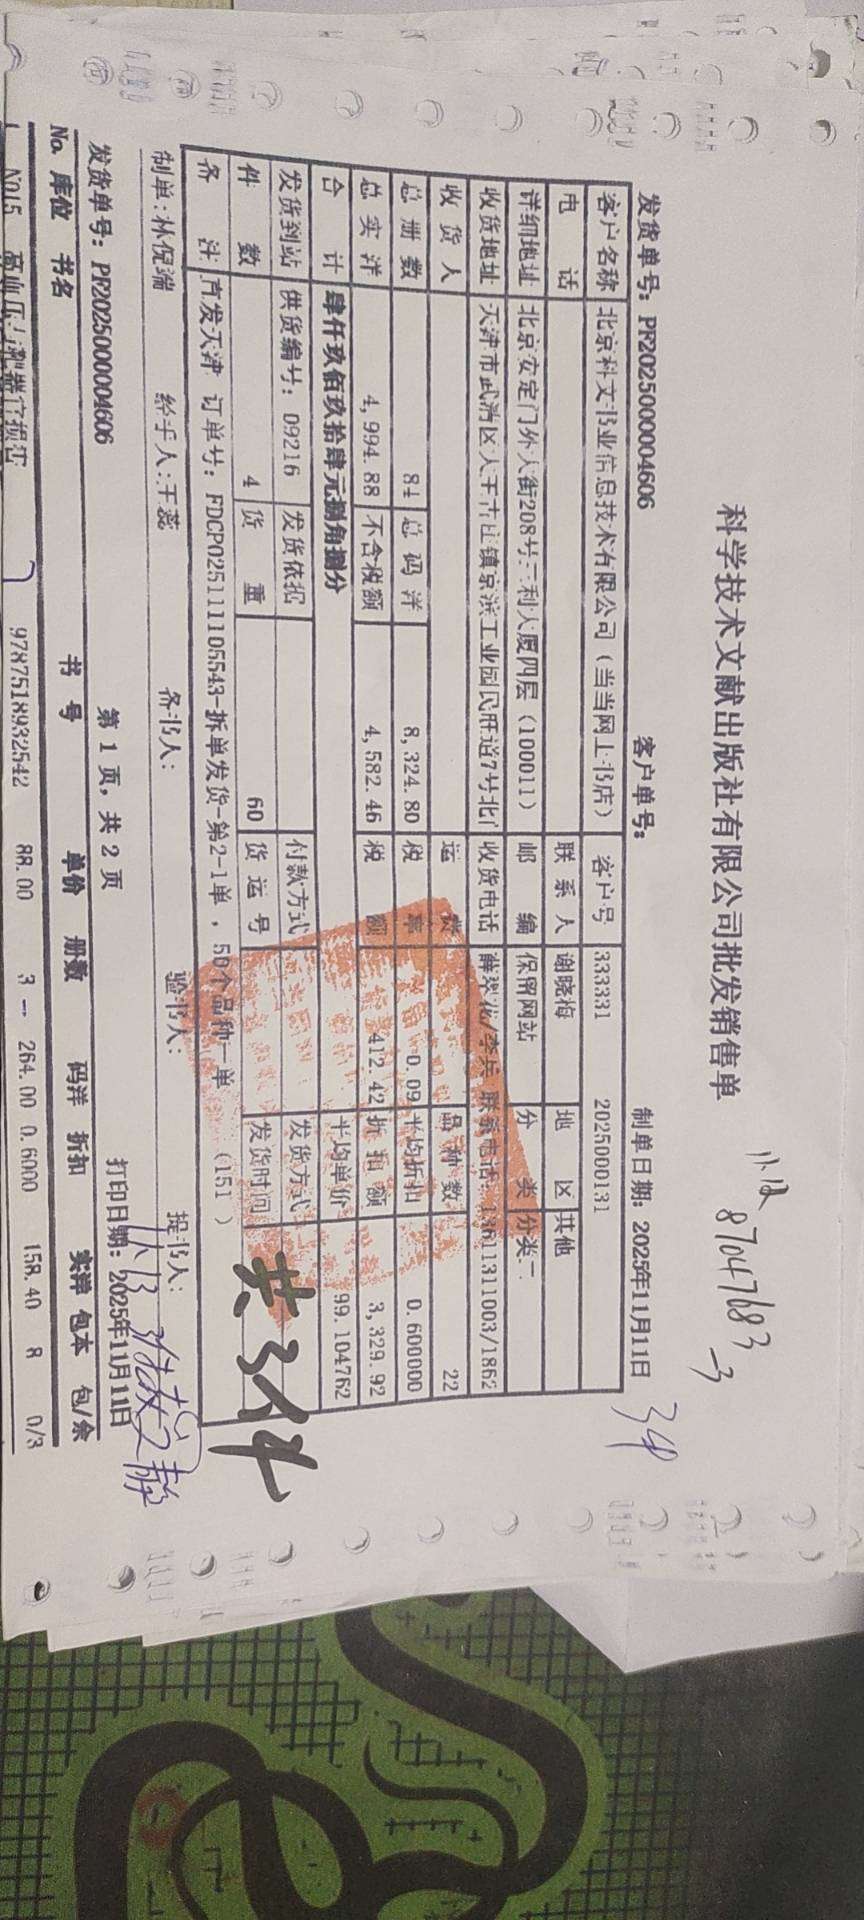 科学技术文献出版社有限公司批发销售单
87047683
-3
发货单号: PF2025000004606 客户单号: 制单日期: 2025年11月11日
客户名称 北京科文书业信息技术有限公司（当当网上书店） 客户号 333331 2025000131
电话 联系人 谢晓梅 地区 其他
详细地址 北京安定门外大街208号三利大厦四层（100011） 邮编 保留网站 分类 分类二
收货地址 天津市武清区大王古庄镇京滨工业园民旺道7号北门 收货电话 薛翠花/李兵 联系电话:13611311003/1862
收货人 运费 品种数 22
总册数 84 总码洋 8,324.80 税率 0.09 平均折扣 0.600000
总实洋 4,994.88 不含税额 4,582.46 税额 412.42 折扣额 3,329.92
合计 肆仟玖佰玖拾肆元捌角捌分 平均单价 99.104762
发货到站 供货编号: 09216 发货依据 付款方式 发货方式
件数 4 货重 60 货运号 发货时间
备注 直发天津 订单号: FDCP025111105543-拆单发货-第2-1单，50个品种一单 （151 ）
共3件
制单:林倪端 经手人:王蕊 备书人: 验书人: 提书人:
11.13
第 1 页, 共 2 页
发货单号: PF2025000004606 打印日期: 2025年11月11日
No. 库位 书名 书号 单价 册数 码洋 折扣 实洋 包本 包/余
1 N015 高血压与靶器官损害 9787518932542 88.00 3 264.00 0.6000 158.40 8 0/3